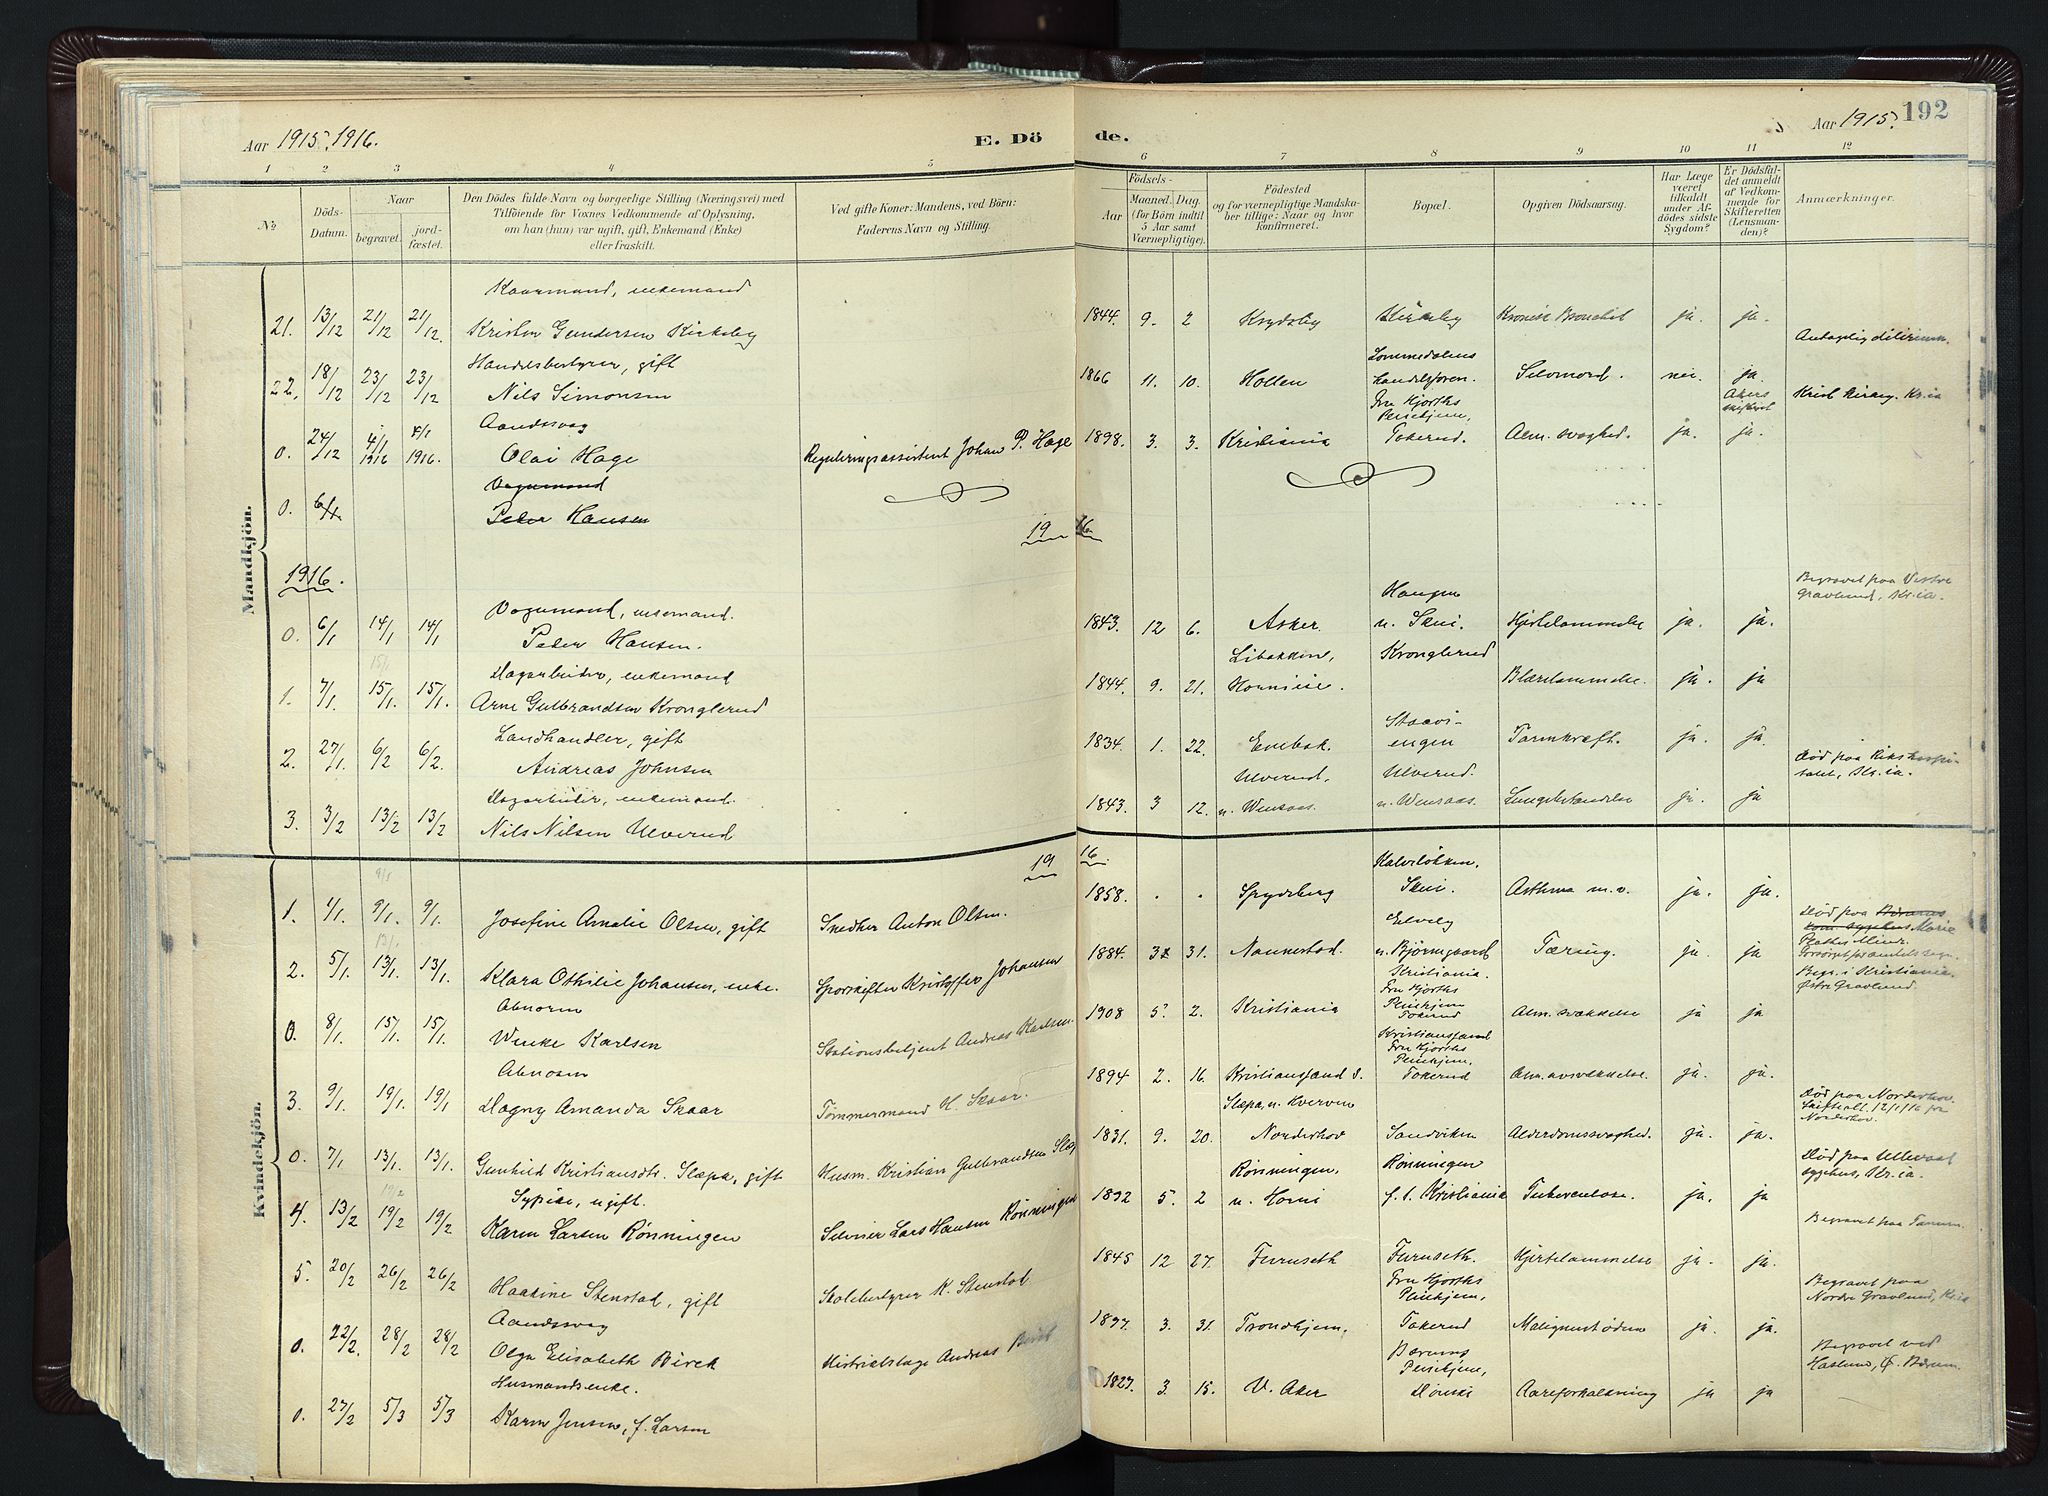 Aar 1915, 1916.
E. Dö de.
Aar 1915.
192
1 2 3 4 5 6 7 8 9 10 11 12
No.
Döds-Datum.
Naar
begravet.
jord-fæstet.
Den Dödes fulde Navn og borgerlige Stilling (Næringsvei) med
Tilföiende for Voxnes Vedkommende af Oplysning,
om han (hun) var ugift, gift, Enkemand (Enke)
eller fraskilt.
Ved gifte Koner: Mandens, ved Börn:
Faderens Navn og Stilling.
Födsels-
Aar
Maaned. Dag.
(for Börn indtil
5 Aar samt
Værnepligtige).
Födested
og for værnepligtige Mandska-
ber tillige: Naar og hvor
konfirmeret.
Bopæl.
Opgiven Dödsaarsag.
Har Læge
været
tilkaldt
under Af-
dödes sidste
Sygdom?
Er Dödsfal-
det anmeldt
af Vedkom-
mende for
Skifteretten
(Lensman-
den)?
Anmærkninger.
Mandkjön.
Kaarmand, enkemand
21. 13/12 21/12 21/12. Kristen Gundersen Kirkeby 1844. 9. 2 Krydsby Kirkeby Kronisk Bronchit ja. ja.
Handelsbestyrer, gift
22. 18/12 23/12 23/12 Nils Simonsen 1866 11. 10. Hollen Lommedalens handelsforen. Selvmord. nei. ja. Antagelig delirium.
Aandssvag
0. 24/12 4/1 1916 4/1 1916. Olai Hage Reguleringsassistent Johan P. Hage 1898. 3. 3. Kristiania Fru Hjorths Pleiehjem, Tokerud. Alm. svaghed. ja. ja. Akers skifteret Krist. Kr.ia
Vognmand
0. 6/1 Peder Hansen
19 16.
1916.
Vognmand, enkemand.
0. 6/1 14/1 14/1 Peder Hansen. 1843. 12 6. Asker. Haugen u. Skui. Hjertelammelse ja. ja. Begravet paa Vestre Gravlund, Kr.ia.
Dagarbeider, enkemand
1. 7/1. 15/1. 15/1. Arne Gulbrandsen Kronglerud 1844. 9. 21. Libakken, Kronglerud Blærelammelse. ja. ja
Landhandler, gift
2. 27/1. 6/2 6/2. Andreas Johnsen 1834. 1. 22. Enebak. Staavi-engen Tarmkræft. ja. ja.
Dagarbeider, enkemand.
3. 3/2 13/2 13/2 Nils Nilsen Ulverud 1843. 3 12. Ulverud, u. Wensaas. Ulverud. u. Wensaas. Lungebetændelse ja. ja Död paa Rikshospitalet, Kr.ia.
Kvindekjön.
19 16
1. 1/1. 9/1. 9/1. Josefine Amalie Olsen, gift Snedker Anton Olsen. 1858. Spydeberg Kalveløkken, Skui. Asthma m.v. ja. ja.
2. 5/1. 13/1. 13/1. Klara Othilie Johansen, enke. Sporskifter Kristoffer Johansen 1884. 3 31. Nannestad. Elvely u. Bjørnegaard Tæring. ja. ja Död paa Bærums kom. sygehus Marie Plathes Minde.
Abnorm
0. 8/1. 15/1. 15/1. Wenke Karlsen Stationsbetjent Andreas Karlsen. 1908 5. 2. Kristiania Kristiania. Fru Hjorths Pleiehjem Tokerud Alm. svækkelse ja ja Begr. i Kristiania. Østre Gravlund.
Abnorm
3. 9/1. 19/1. 19/1 Dagny Amanda Skaar Tømmermand H. Skaar. 1894 2. 16. Kristianssand S. Kristianssand Fru Hjorths Pleiehjem. Tokerud Alm. avsvækkelse. ja. ja.
0. 7/1 13/1. 13/1. Gunhild Kristiansdtr. Slæpa, gift Husm. Kristian Gulbrandsen Slæp 1831. 9. 20. Slæpa, u. Kverven Norderhov Sandviken Alderdomssvaghed. ja. ja. Död paa Norderhov. Skifteatt. 12/1 1916 fra Norderhov.
Sypige, ugift.
4. 13/2 19/2 19/2 Karen Larsen Rønningen Selveier Lars Hansen Rønningen 1892 5. 2 Rønningen, u. Horni Rønningen f. t. Kristiania Tuberculose. ja. ja Död paa Ullevaal sygehus, Kr.ia.
5. 20/2 26/2 26/2 Haakine Stenstad, gift Skolebestyrer K. Stenstad 1845 12 27. Furuseth Furuseth. Hjertelammelse ja. ja. Begravet paa Tanum.
Aandssvag
0. 22/2. 28/2 28/2 Olga Elisabeth Birck Distriktslæge Andreas Birck 1897. 3. 31. Trondhjem. Fru Hjorths Pleiehjem, Tokerud Malignt ødem ja. ja. Begravet paa Nordre Gravlund, Kr.ia
Husmandsenke.
0. 27/2 5/3 5/3 Karen Jensen, f. Larsen 1827. 3. 15. V. Aker Bærums Pleiehjem, Dønski Aareforkalkning ja ja Begravet ved Haslum, Ø. Bærum.